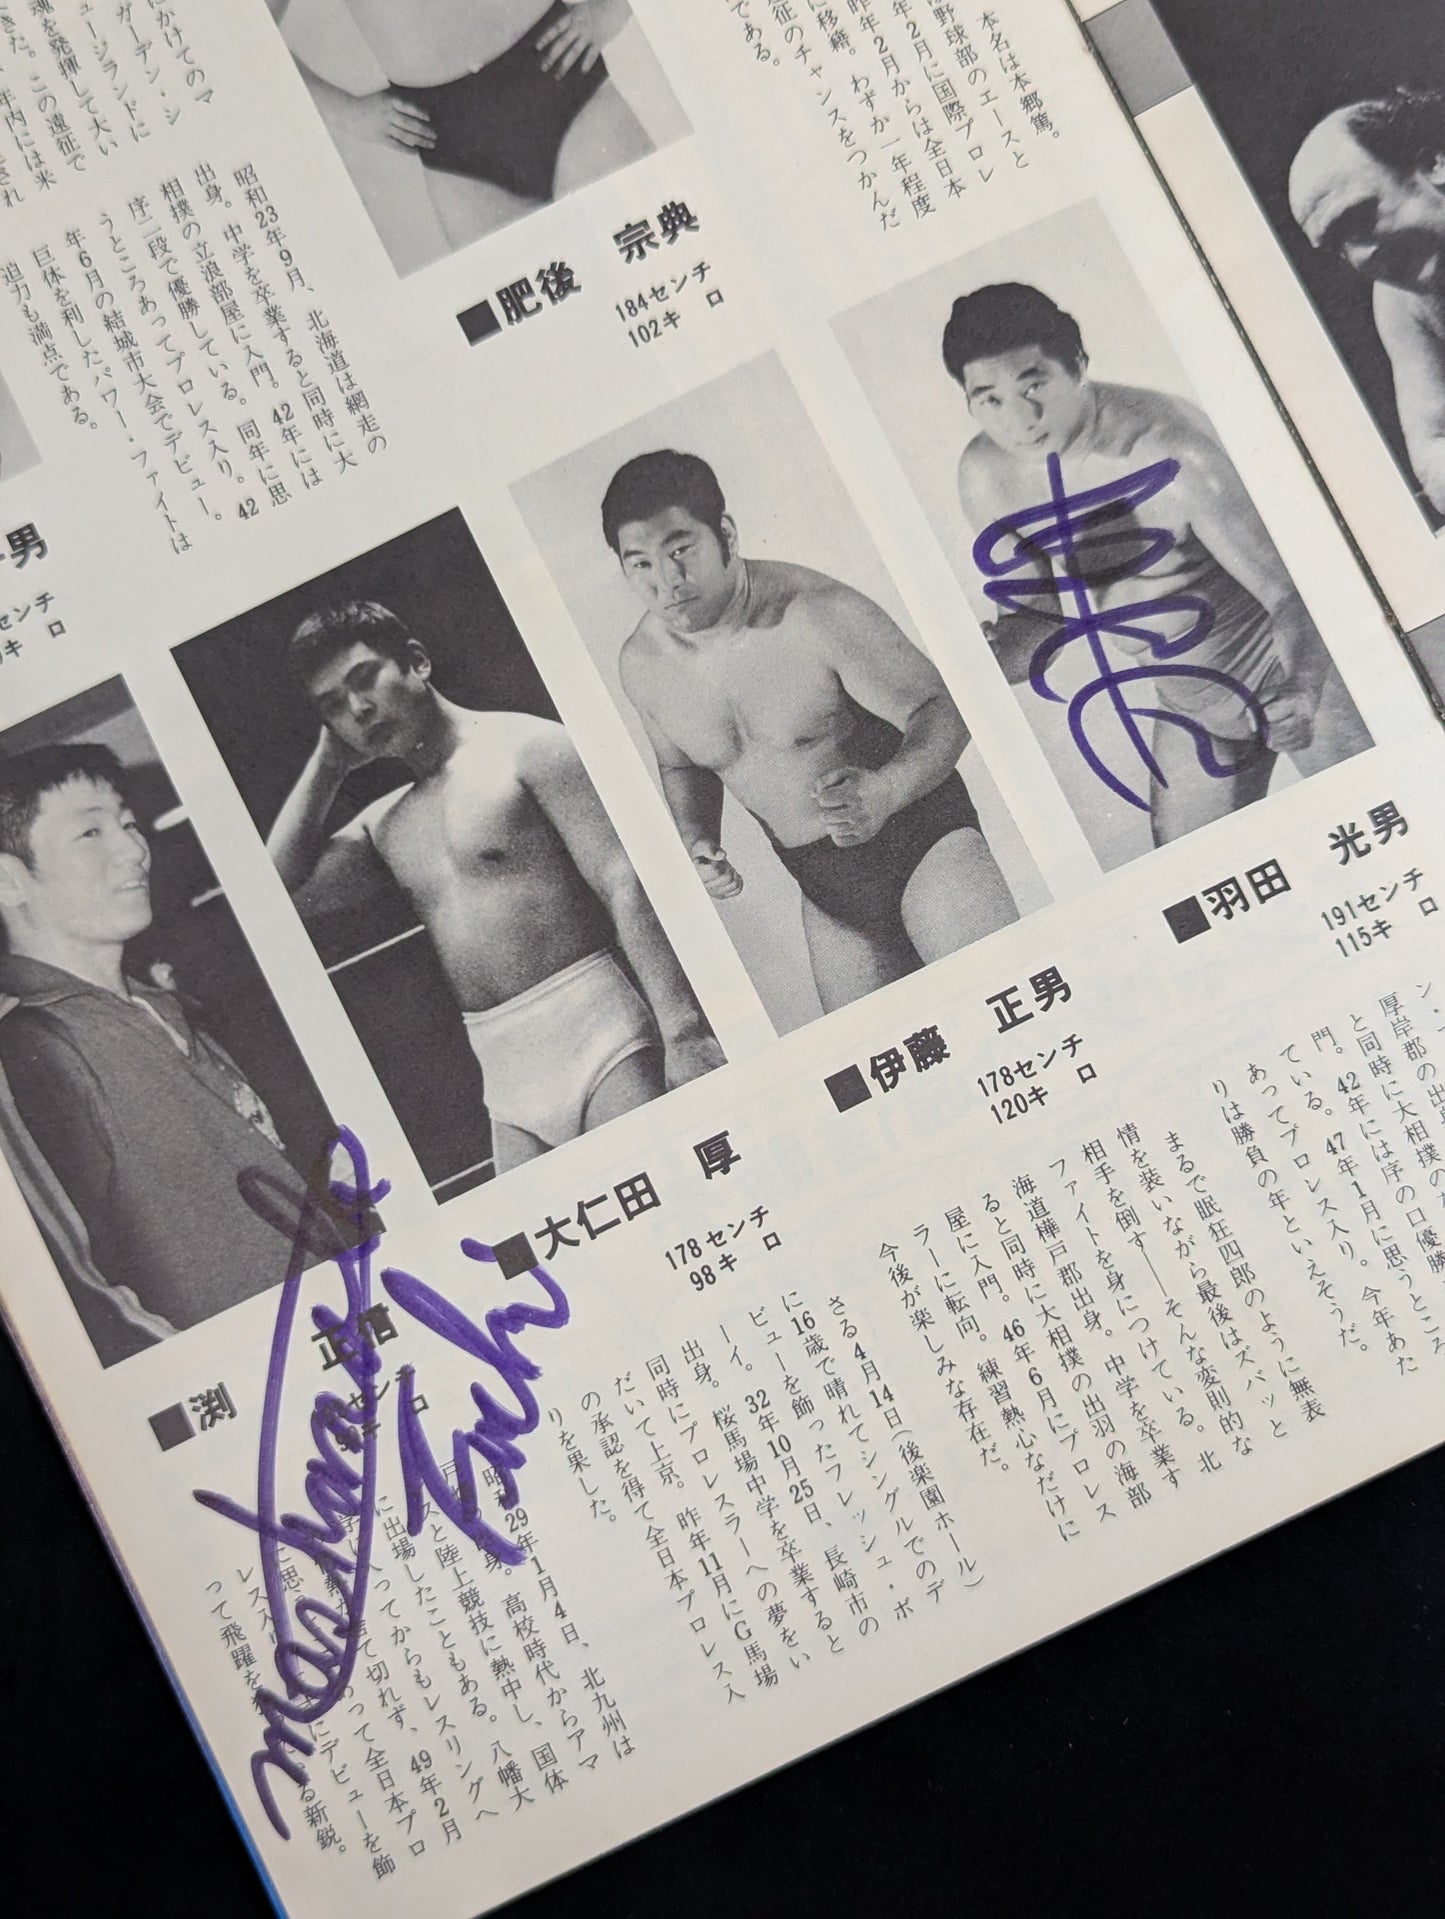 にかけてのマ
ガーデン・シ
ュージランドに
魂を発揮して大い
きた。この遠征で
年内には米
本名は本郷篤。
野球部のエースと
年2月に国際プロレ
昨年2月からは全日本
に移籍。わずか一年程度
征のチャンスをつかんだ
である。
■肥後 宗典
184センチ
102キロ
昭和23年9月、北海道は網走の
出身。中学を卒業すると同時に大
相撲の立浪部屋に入門。42年には
序二段で優勝している。同年に思
うところあってプロレス入り。42
年6月の結城市大会でデビュー。
巨体を利したパワー・ファイトは
迫力も満点である。
男
センチ
キロ
■羽田 光男
191センチ
115キロ
厚岸郡の出
と同時に大相撲の
門。42年には序の口優勝
ている。47年1月に思うところ
あってプロレス入り。今年あた
りは勝負の年といえそうだ。
■伊藤 正男
178センチ
120キロ
まるで眠狂四郎のように無表
情を装いながら最後はズバッと
相手を倒す——そんな変則的な
ファイトを身につけている。北
海道樺戸郡出身。中学を卒業す
ると同時に大相撲の出羽の海部
屋に入門。46年6月にプロレス
ラーに転向。練習熱心なだけに
今後が楽しみな存在だ。
■大仁田 厚
178センチ
98キロ
さる4月14日(後楽園ホール)
に16歳で晴れてシングルでのデ
ビューを飾ったフレッシュ・ボ
ーイ。32年10月25日、長崎市の
出身。桜馬場中学を卒業すると
同時にプロレスラーへの夢をい
だいて上京。昨年11月にG馬場
の承認を得て全日本プロレス入
りを果した。
■渕 正信
センチ
キロ
昭和29年1月4日、北九州は
身。高校時代からアマ
スと陸上競技に熱中し、国体
に出場したこともある。八幡大
入ってからもレスリングへ
捨て切れず、49年2月
って全日本プロ
レス入り
にデビューを飾
って飛躍を
る新鋭。
Fuchi